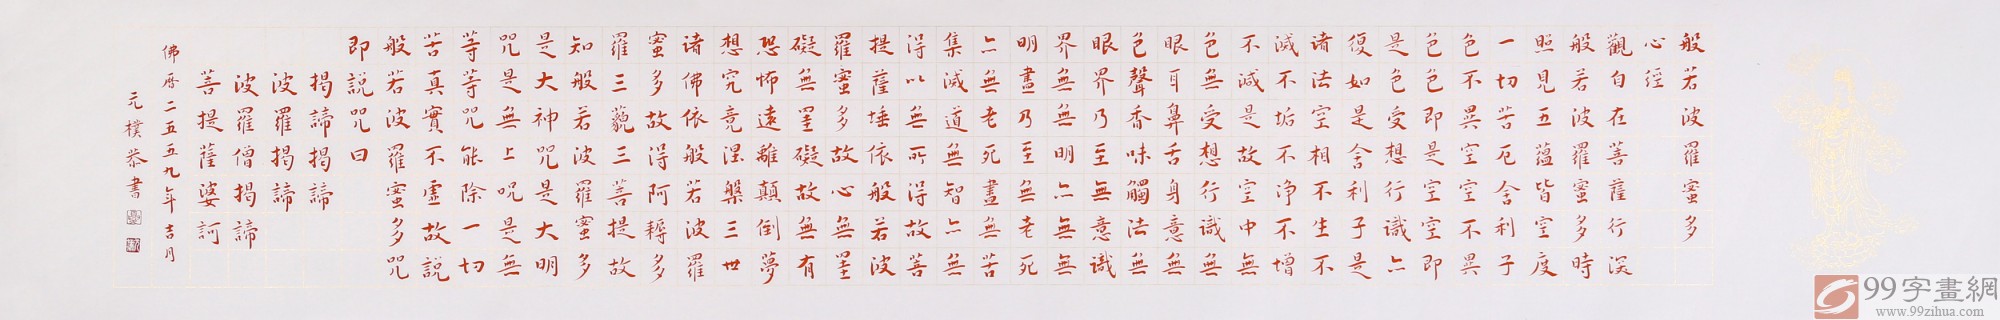 般若波羅蜜多
心經
觀自在菩薩行深
般若波羅蜜多時
照見五蘊皆空度
一切苦厄舍利子
色不異空空不異
色色即是空空即
是色受想行識亦
復如是舍利子是
諸法空相不生不
滅不垢不淨不增
不減是故空中無
色無受想行識無
眼耳鼻舌身意無
色聲香味觸法無
眼界乃至無意識
界無無明亦無無
明盡乃至無老死
亦無老死盡無苦
集滅道無智亦無
得以無所得故菩
提薩埵依般若波
羅蜜多故心無罣
礙無罣礙故無有
恐怖遠離顛倒夢
想究竟涅槃三世
諸佛依般若波羅
蜜多故得阿耨多
羅三藐三菩提故
知般若波羅蜜多
是大神咒是大明
咒是無上咒是無
等等咒能除一切
苦真實不虛故說
般若波羅蜜多咒
即說咒曰
揭諦揭諦
波羅揭諦
波羅僧揭諦
菩提薩婆訶
佛曆二五五九年吉月
元樸恭書
99字畫網
www.99zihua.com